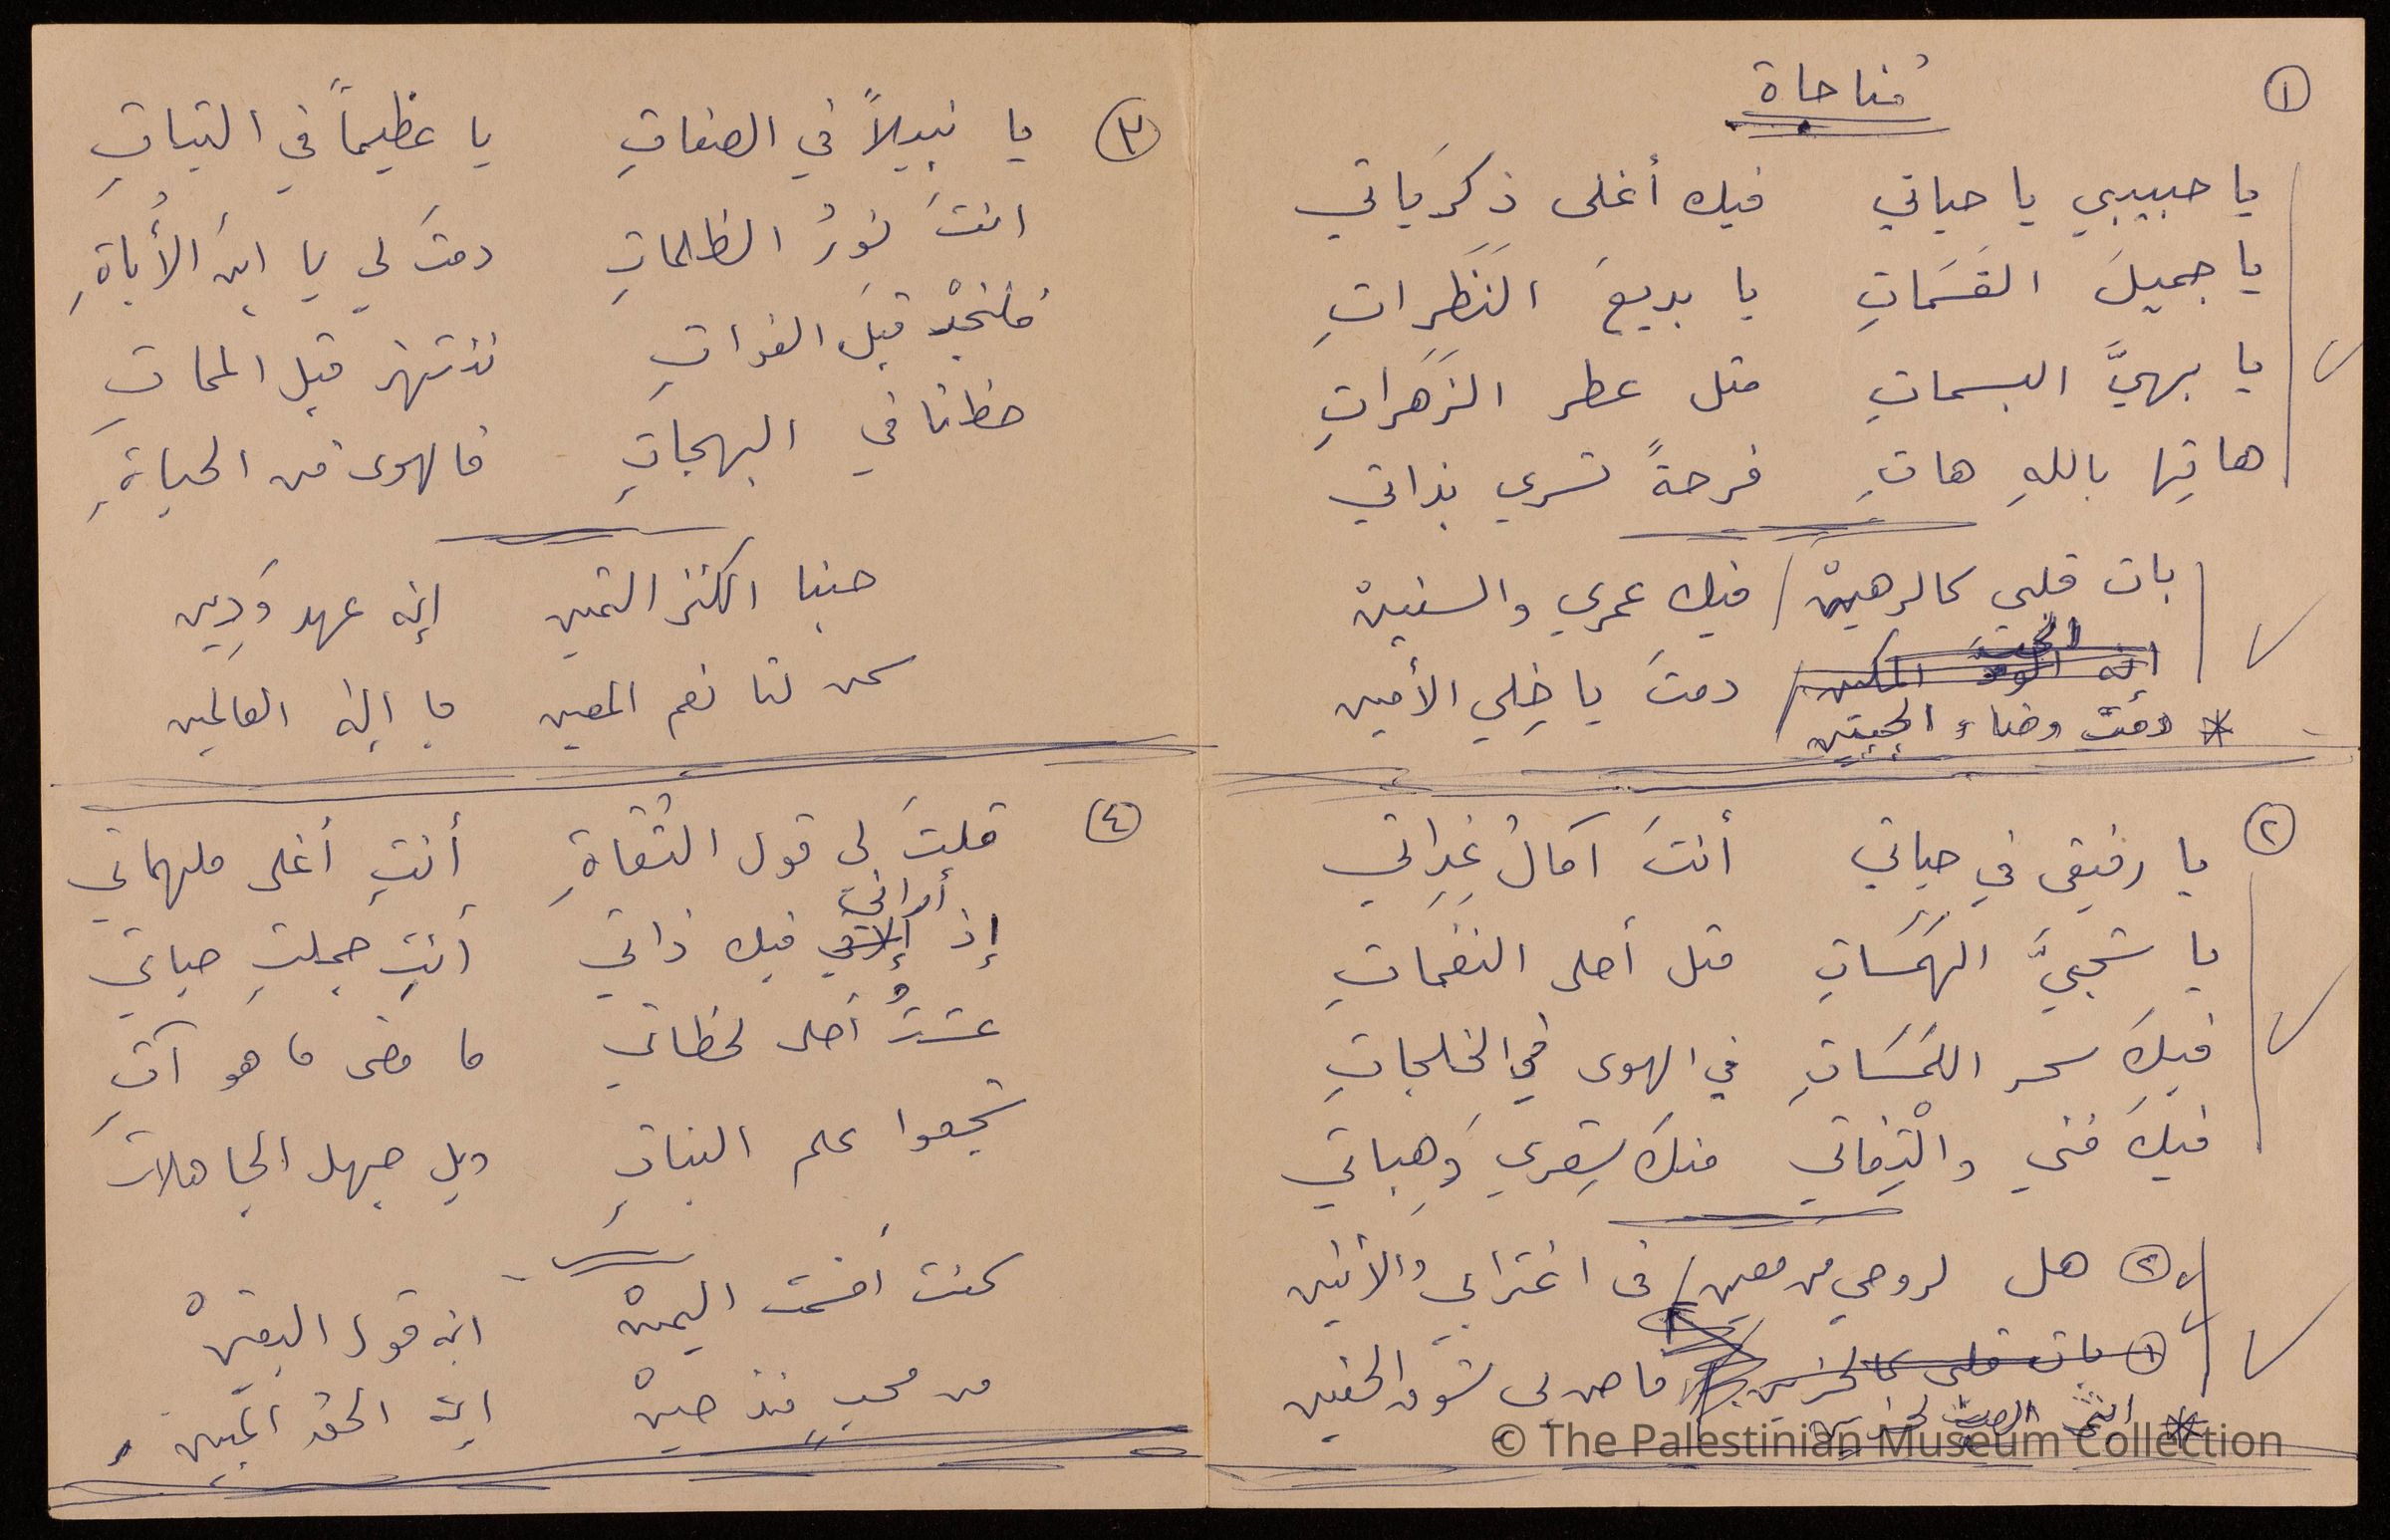 ①
مُناجاة
يا حبيبي يا حياتي فيك أغلى ذكرَياتي
يا جميلَ القَسَماتِ يا بديعَ النَظَراتِ
يا بهيَّ البسماتِ مثل عطر الزَهَراتِ
هاتِها باللهِ هاتِ فرحةً تسري بذاتي
بات قلبي كالرهينْ / فيك عمري والسنينْ
إنه المكين / دمتَ يا خِلي الأمين
* دمتَ وضاء الجبين
②
يا رفيقي في حياتي أنتَ آمالُ غدِاتي
يا شجيَّ الهَمَساتِ مثل أحلى النغماتِ
فيكَ سحر اللمَسَاتِ في الهوى في الخلجاتِ
فيكَ فني والْتِفاتي منكَ شِعري وَهِباتي
② هل لروحي من معين / في اغترابي والأنين
① بات قلبي كالحزين ما صر لي شوق الحنين
③
يا نبيلاً في الصفاتِ يا عظيماً في الثباتِ
انتَ نورُ الظلماتِ دمتَ لي يا ابنَ الأُباةِ
فلنجدْ قبلَ الفواتِ ننتهز قبل المماتِ
حظنا في البهجاتِ فالهوى من الحياةِ
حبنا الكنز الثمين إنه عهد وَدِين
كن لنا نعم المعين يا إله العالمين
④
قلتَ لي قول الثُقاةِ أنتِ أغلى ملهماتي
أراني
إذ ألاقي فيك ذاتي أنتِ جملتِ حياتي
عشتُ أحلى لحظاتي ما مضى ما هو آتِ
شجعوا علم البناتِ ويل جهل الجاهلات
كنت أقسمت اليمينْ انه قول اليقينْ
من محبٍ منذ حينْ إنه الحق المبين
© The Palestinian Museum Collection